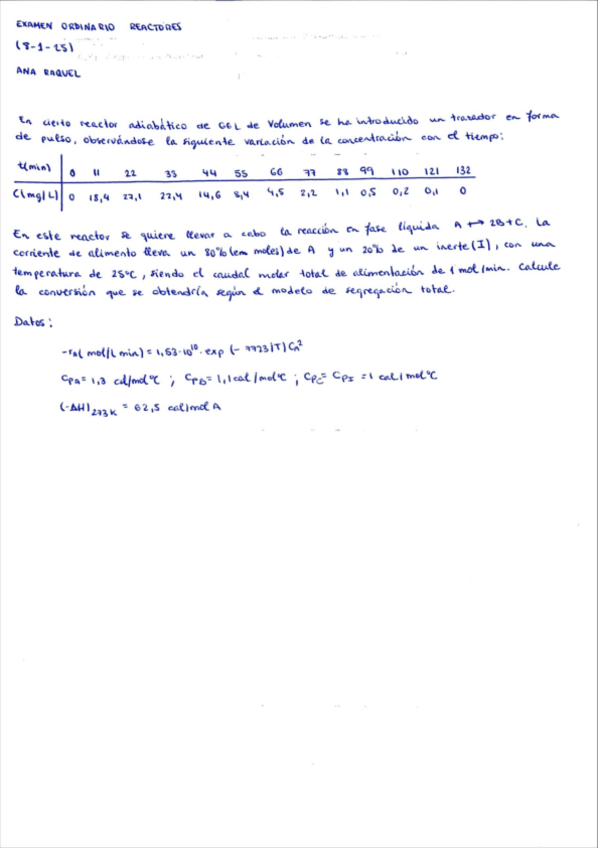 EXAMEN ORDINARIO REACTORES
(8-1-25)
ANA RAQUEL
En cierto reactor adiabático de 66 L de Volumen se ha introducido un trazador en forma
de pulso, observándose la siguiente variación de la concentración con el tiempo:
t(min) 0 11 22 33 44 55 66 77 88 99 110 121 132
C(mg/L) 0 18,4 27,1 22,4 14,6 8,4 4,5 2,2 1,1 0,5 0,2 0,1 0
En este reactor se quiere llevar a cabo la reacción en fase líquida A ↔ 2B+C. La
corriente de alimento lleva un 80% (en moles) de A y un 20% de un inerte (I), con una
temperatura de 25ºC, siendo el caudal molar total de alimentación de 1 mol/min. Calcule
la conversión que se obtendría según el modelo de segregación total.
Datos:
-rA( mol/L min) = 1,63·10¹⁰ · exp (- 7723/T) CA²
CPA = 1,3 cal/mol ºC ; CPB = 1,1 cal/mol ºC ; CPC = CPI = 1 cal/mol ºC
(-ΔH)273K = 62,5 cal/mol A